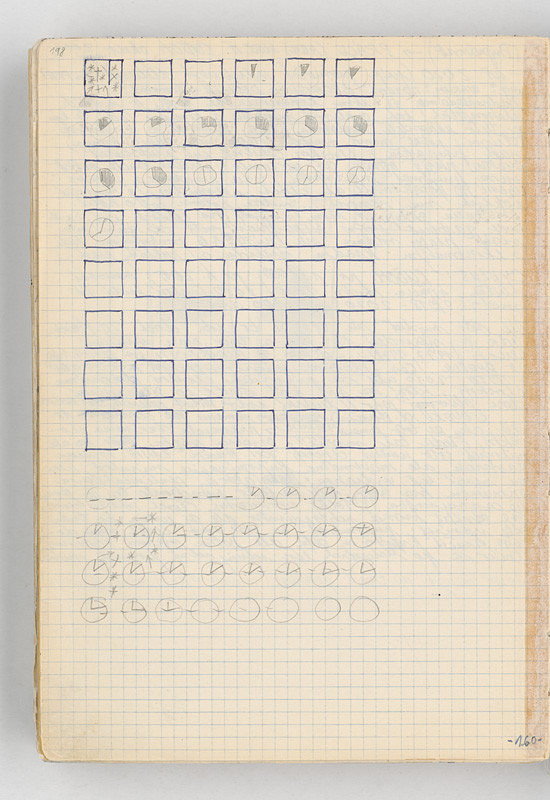 198
-160-